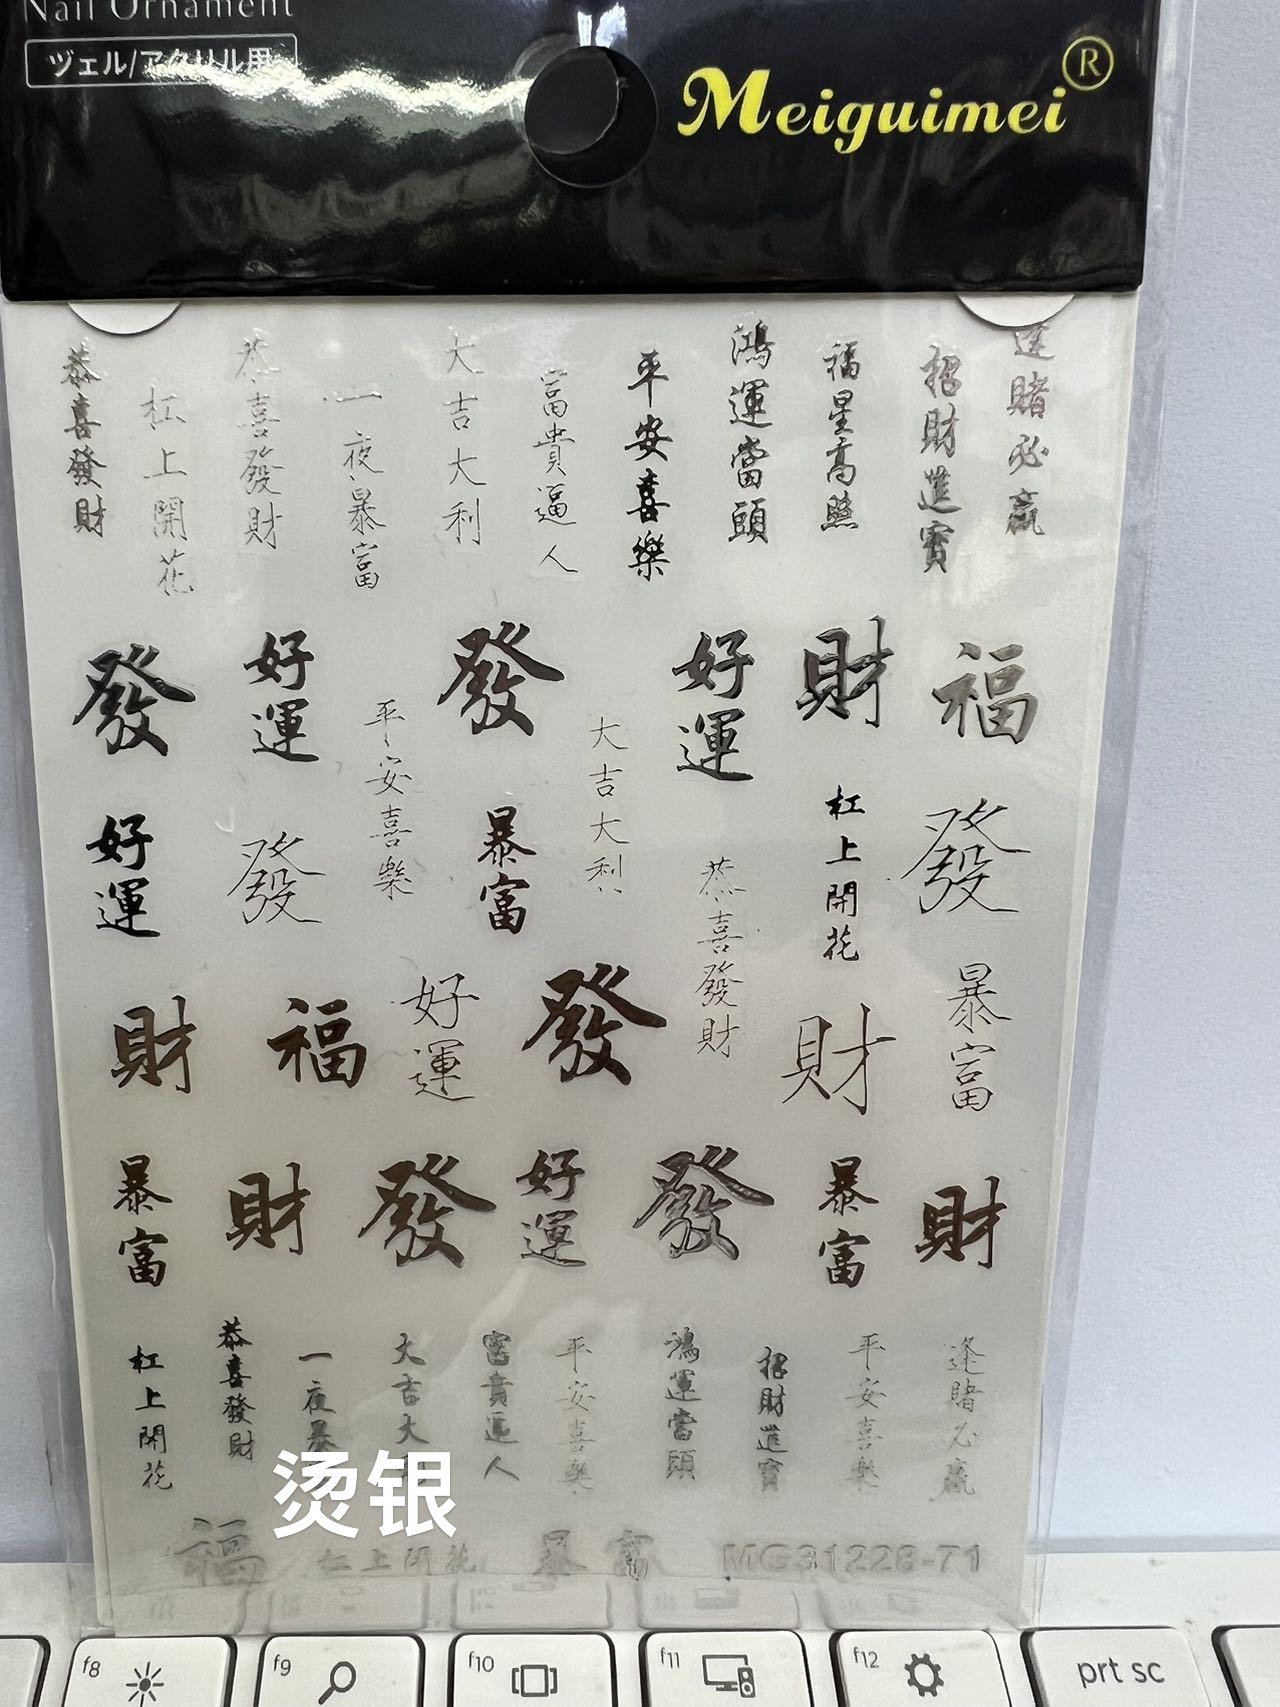 Nail Ornament
ヅェル/アクリル用
Meiguimei®
恭喜發財
杠上開花
恭喜發財
一夜暴富
大吉大利
富貴逼人
平安喜樂
鴻運當頭
福星高照
招財進寶
逢賭必贏
發
好運
發
好運
財
福
平安喜樂
大吉大利
好運
發
暴富
恭喜發財
杠上開花
發
財
福
好運
發
財
暴富
暴富
財
發
好運
發
暴富
財
杠上開花
恭喜發財
一夜暴
大吉大
富貴逼人
平安喜樂
鴻運當頭
招財進寶
平安喜樂
逢賭必贏
烫银
福
杠上開花
暴富
MG31228-71
f8
f9
f10
f11
f12
prt sc